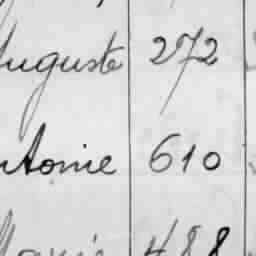 Auguste 272
ntonie 610
Marie 488